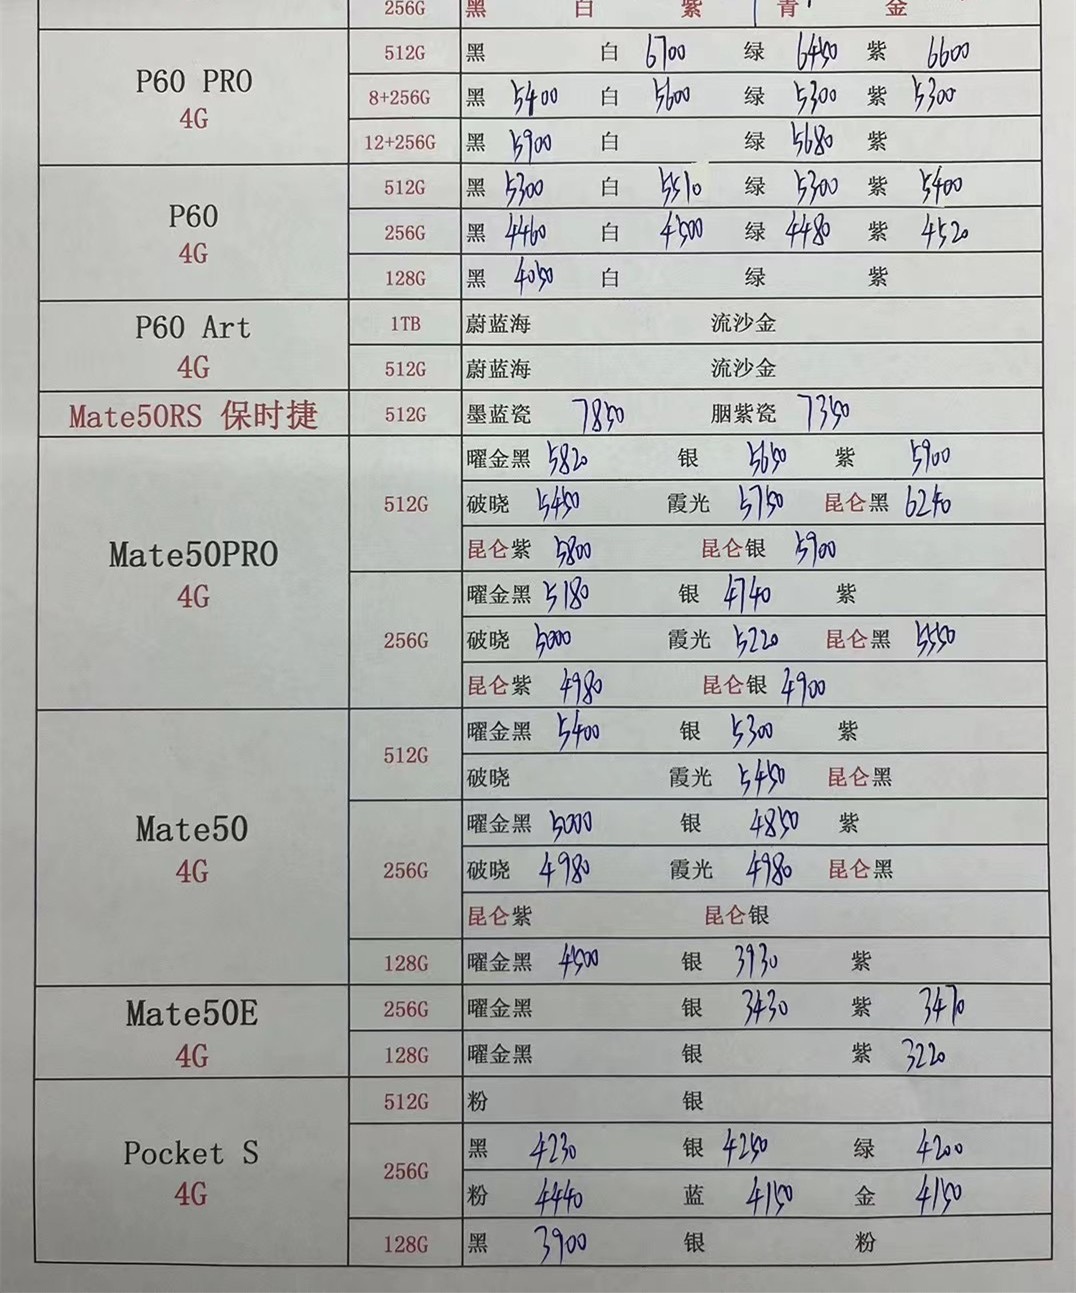 256G 黑 白 紫 青 金
P60 PRO 4G
512G 黑 白 6700 绿 6450 紫 6600
8+256G 黑 5400 白 5600 绿 5300 紫 5300
12+256G 黑 5900 白 绿 5680 紫
P60 4G
512G 黑 5300 白 5510 绿 5300 紫 5400
256G 黑 4460 白 4500 绿 4480 紫 4520
128G 黑 4050 白 绿 紫
P60 Art 4G
1TB 蔚蓝海 流沙金
512G 蔚蓝海 流沙金
Mate50RS 保时捷 512G 墨蓝瓷 7850 胭紫瓷 7350
Mate50PRO 4G
512G 曜金黑 5820 银 5650 紫 5900
破晓 5450 霞光 5750 昆仑黑 6240
昆仑紫 5800 昆仑银 5900
256G 曜金黑 5180 银 4740 紫
破晓 5000 霞光 5220 昆仑黑 5550
昆仑紫 4980 昆仑银 4900
Mate50 4G
512G 曜金黑 5400 银 5300 紫
破晓 霞光 5450 昆仑黑
256G 曜金黑 5000 银 4850 紫
破晓 4980 霞光 4980 昆仑黑
昆仑紫 昆仑银
128G 曜金黑 4500 银 3930 紫
Mate50E 4G
256G 曜金黑 银 3430 紫 3470
128G 曜金黑 银 紫 3220
Pocket S 4G
512G 粉 银
256G 黑 4230 银 4250 绿 4200
粉 4440 蓝 4150 金 4150
128G 黑 3900 银 粉